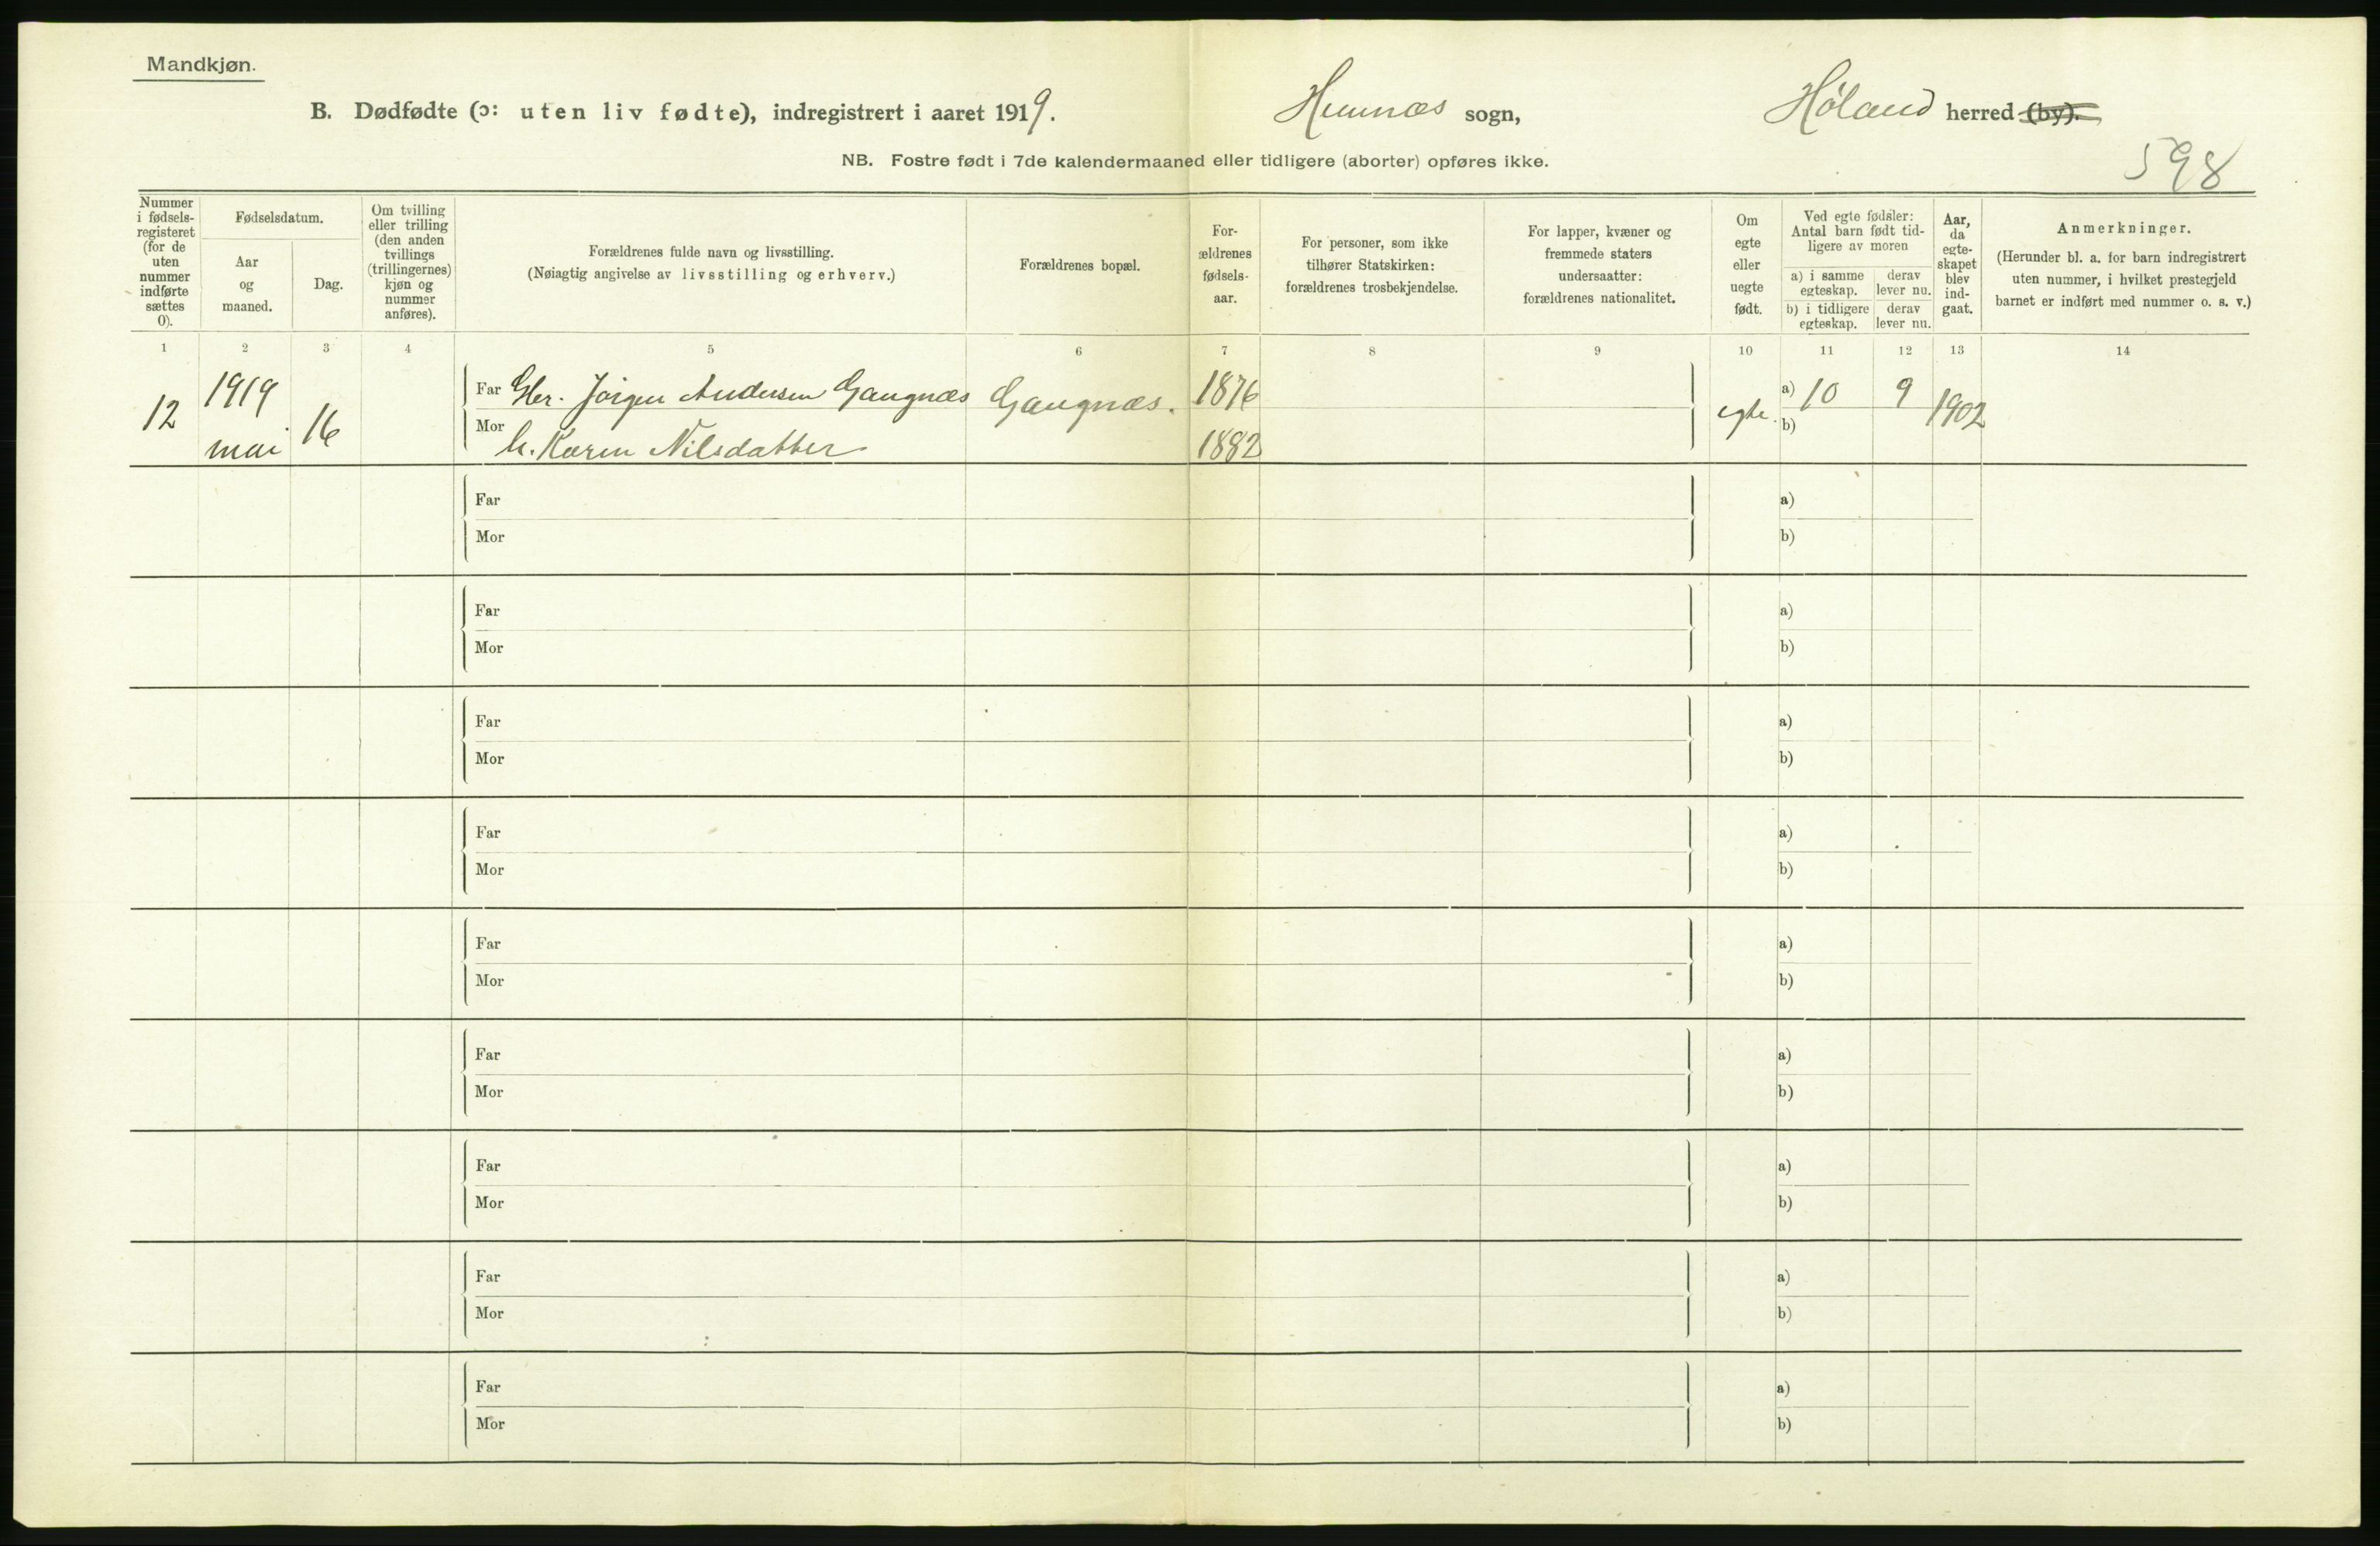 Mandkjøn.
B. Dødfødte (ɔ: uten liv fødte), indregistrert i aaret 1919. Hemnæs sogn, Høland herred (by).
NB. Fostre født i 7de kalendermaaned eller tidligere (aborter) opføres ikke.
598
Nummer
i fødsels-
registeret
(for de
uten
nummer
indførte
sættes
0).
Fødselsdatum.
Aar
og
maaned.
Dag.
Om tvilling
eller trilling
(den anden
tvillings
(trillingernes)
kjøn og
nummer
anføres).
Forældrenes fulde navn og livsstilling.
(Nøiagtig angivelse av livsstilling og erhverv.)
Forældrenes bopæl.
For-
ældrenes
fødsels-
aar.
For personer, som ikke
tilhører Statskirken:
forældrenes trosbekjendelse.
For lapper, kvæner og
fremmede staters
undersaatter:
forældrenes nationalitet.
Om
egte
eller
uegte
født.
Ved egte fødsler:
Antal barn født tid-
ligere av moren
a) i samme
egteskap.
derav
lever nu.
b) i tidligere
egteskap.
derav
lever nu.
Aar,
da
egte-
skapet
blev
ind-
gaat.
Anmerkninger.
(Herunder bl. a. for barn indregistrert
uten nummer, i hvilket prestegjeld
barnet er indført med nummer o. s. v.)
1 2 3 4 5 6 7 8 9 10 11 12 13 14
12 1919 mai 16
Far Gbr. Jørgen Andersen Gangnæs Gangnæs. 1876 egte. a) 10 9 1902
Mor h. Karen Nilsdatter 1882 b)
Far a)
Mor b)
Far a)
Mor b)
Far a)
Mor b)
Far a)
Mor b)
Far a)
Mor b)
Far a)
Mor b)
Far a)
Mor b)
Far a)
Mor b)
Far a)
Mor b)